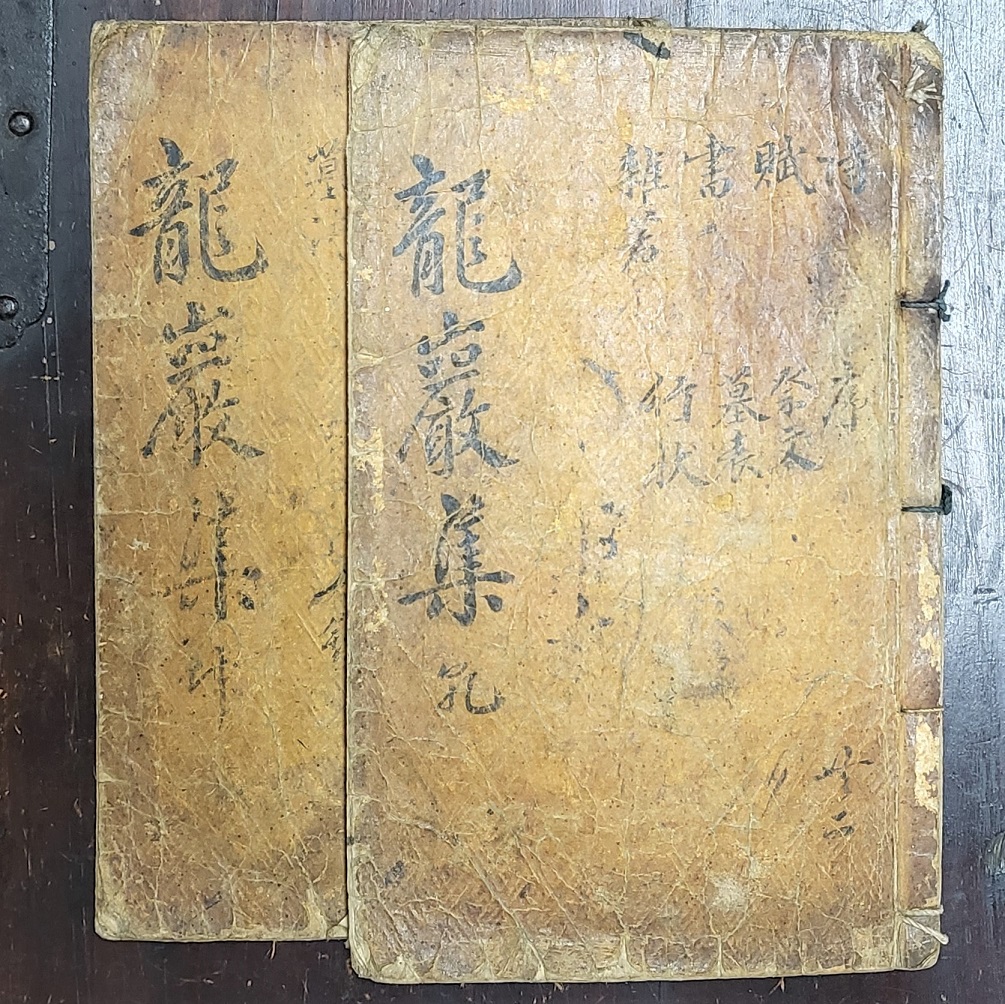 詩 序
賦 祭文
書 墓表
雜著 行狀
共二
龍巖集 乹
龍巖集 坤